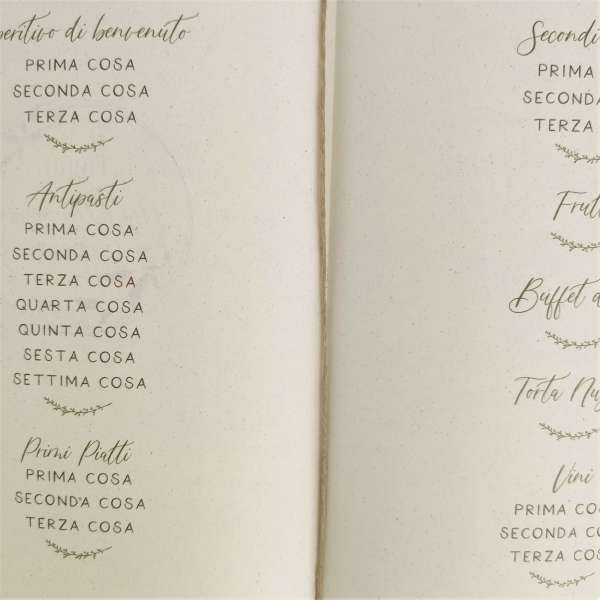 peritivo di benvenuto
PRIMA COSA
SECONDA COSA
TERZA COSA
Antipasti
PRIMA COSA
SECONDA COSA
TERZA COSA
QUARTA COSA
QUINTA COSA
SESTA COSA
SETTIMA COSA
Primi Piatti
PRIMA COSA
SECONDA COSA
TERZA COSA
Secondi
PRIMA
SECONDA
TERZA
Frut
Buffet d
Torta Nu
Vini
PRIMA CO
SECONDA CO
TERZA COS